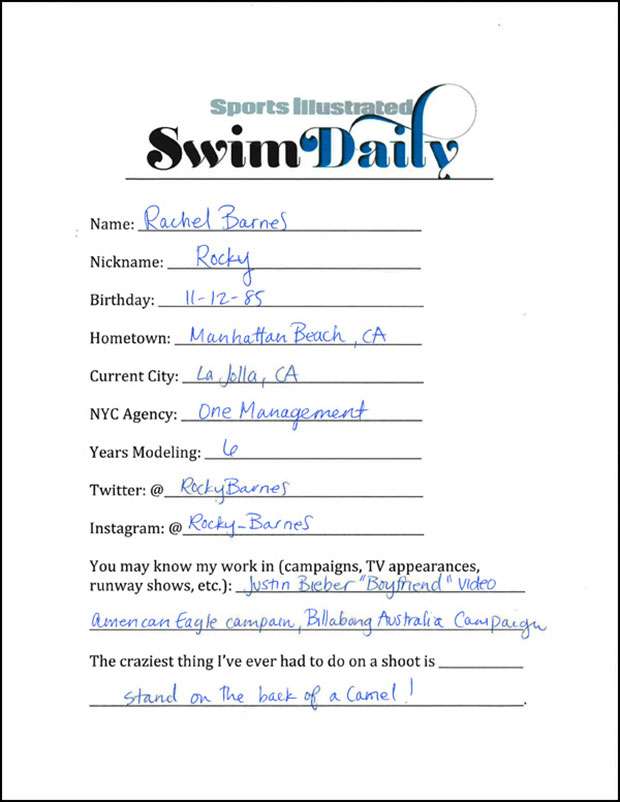 Sports Illustrated
Swim Daily
Name: Rachel Barnes
Nickname: Rocky
Birthday: 11-12-85
Hometown: Manhattan Beach, CA
Current City: La Jolla, CA
NYC Agency: One Management
Years Modeling: 6
Twitter: @ RockyBarnes
Instagram: @ Rocky_Barnes
You may know my work in (campaigns, TV appearances,
runway shows, etc.): Justin Bieber "Boyfriend" video
american Eagle campain, Billabong Australia Campaign
The craziest thing I've ever had to do on a shoot is
stand on the back of a Camel!